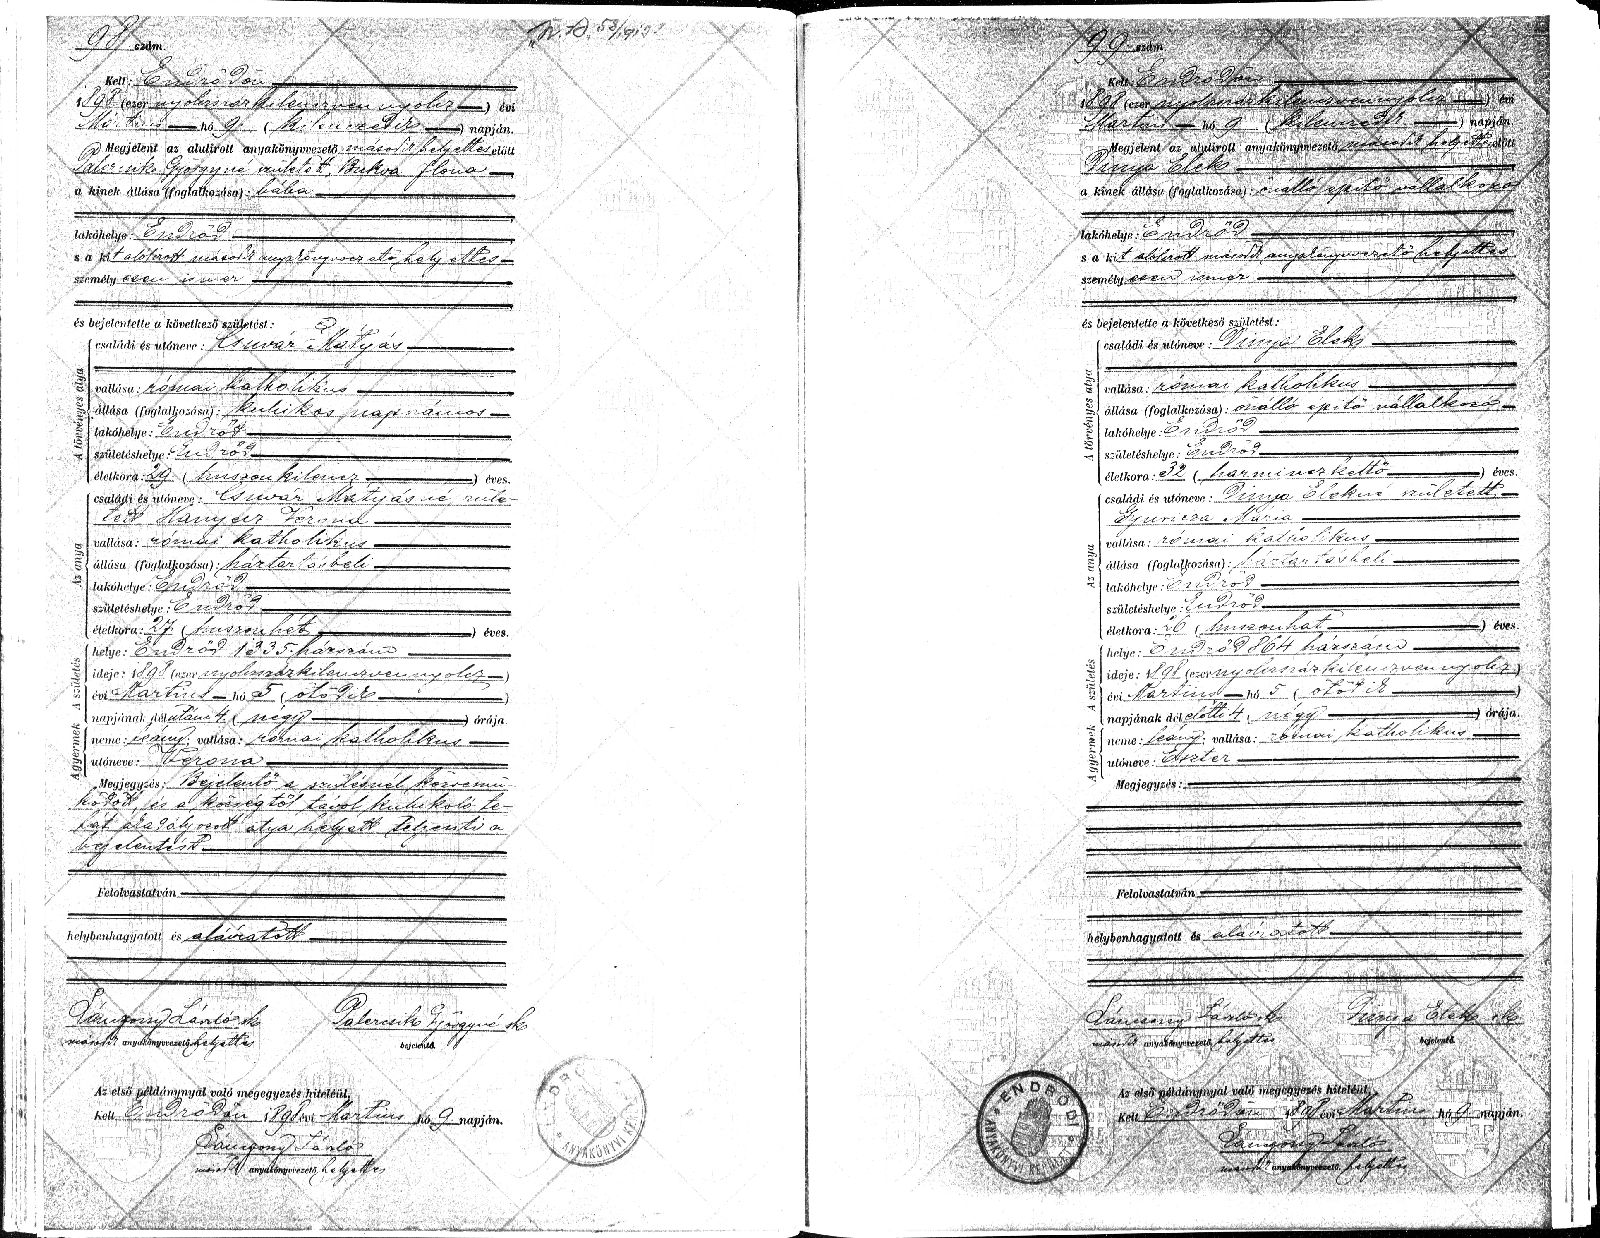 98 szám.
Kelt: Endrődön
1898 (ezer nyolcszázkilenczvennyolcz) évi
Mártius hó 9. (kilenczedik) napján.
Megjelent az alulirott anyakönyvvezető másodk helyettes előtt
Palercsik Györgyné született Bukva Ilona
a kinek állása (foglalkozása): bába
lakóhelye: Endrőd
s a kit alolirott másodk anyakönyvvezető helyettes
személyesen ismer
és bejelentette a következő születést:
A törvényes atya
családi és utóneve: Csuvár Mátyás
vallása: római katholikus
állása (foglalkozása): kubikos napszámos
lakóhelye: Endrőd
születéshelye: Endrőd
életkora: 29 (huszonkilencz) éves.
Az anya
családi és utóneve: Csuvár Mátyásné szüle-
tett Hanyecz Verona
vallása: római katholikus
állása (foglalkozása): háztartásbeli
lakóhelye: Endrőd
születéshelye: Endrőd
életkora: 27. (huszonhét) éves.
A születés
helye: Endrőd 1335. házszám
ideje: 1898 (ezer nyolcszázkilenczvennyolcz)
évi Martius hó 5 (ötödik)
napjának délutáni 4. (négy) órája.
A gyermek
neme: leány; vallása: római katholikus
utóneve: Verona
Megjegyzés: Bejelentő a szülésnél közremü-
ködött, és a községtől távol kubikoló le-
tát akadályozott atya helyett teljesiti a
bejelentést
Felolvastatván
helybenhagyatott és aláiratott
László sk
másodk anyakönyvvezető helyettes
Palercsik Györgyné sk
bejelentő.
Az első példánynyal való megegyezés hiteléül,
Kelt Endrődön 1898 évi Martius hó 9 napján.
László
másodk anyakönyvvezető helyettes
ANYAKÖNYVI
99 szám
Kelt Endrődön
1898 (ezer nyolcszázkilenczvennyolcz) évi
Martius hó 9 (kilenczedik) napján.
Megjelent az alulirott anyakönyvvezető másodk helyettes előtt
Dunya Elek
a kinek állása (foglalkozása): önálló epitő vállalkozó
lakóhelye: Endrőd
s a kit alolirott másodk anyakönyvvezető helyettes
személyesen ismer
és bejelentette a következő születést:
A törvényes atya
családi és utóneve: Dunya Elek
vallása: római katholikus
állása (foglalkozása): önálló epitő vállalkozó
lakóhelye: Endrőd
születéshelye: Endrőd
életkora: 32 (harminczkettő) éves.
Az anya
családi és utóneve: Dunya Elekné született
Gyuricza Mária
vallása: római katholikus
állása (foglalkozása): háztartásbeli
lakóhelye: Endrőd
születéshelye: Endrőd
életkora: 26 (huszonhat) éves.
A születés
helye: Endrőd 864 házszám
ideje: 1898 (ezer nyolcszázkilenczvennyolcz)
évi Martius hó 5 (ötödik)
napjának délelőtti 4 (négy) órája.
A gyermek
neme: leány; vallása: római katholikus
utóneve: Eszter
Megjegyzés:
Felolvastatván
helybenhagyatott és aláiratott
László sk
másodk anyakönyvvezető helyettes
Dunya Elek sk
bejelentő.
Az első példánynyal való megegyezés hiteléül,
Kelt Endrődön 1898 évi Martius hó 9 napján.
László
másodk anyakönyvvezető helyettes
ENDRŐDI ANYAKÖNYVI KERÜLET